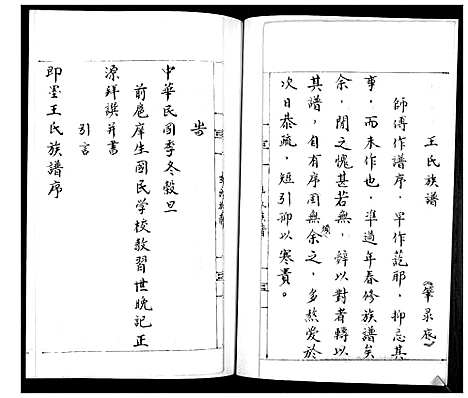 王氏族譜
（肇景底）
師傅作譜序，早作競耶，抑忘其
事，而未作也，準過年春修族譜矣
余，聞之愧甚若無，辭以對者轉以
其譜，自有序固無須余之，多熬爱於
次日恭疏，短引仰以寒責。
岢
中華民國季冬穀旦
前庠生國民學校教習世晚記正
源拜譔并書
引言
即墨王氏族譜序